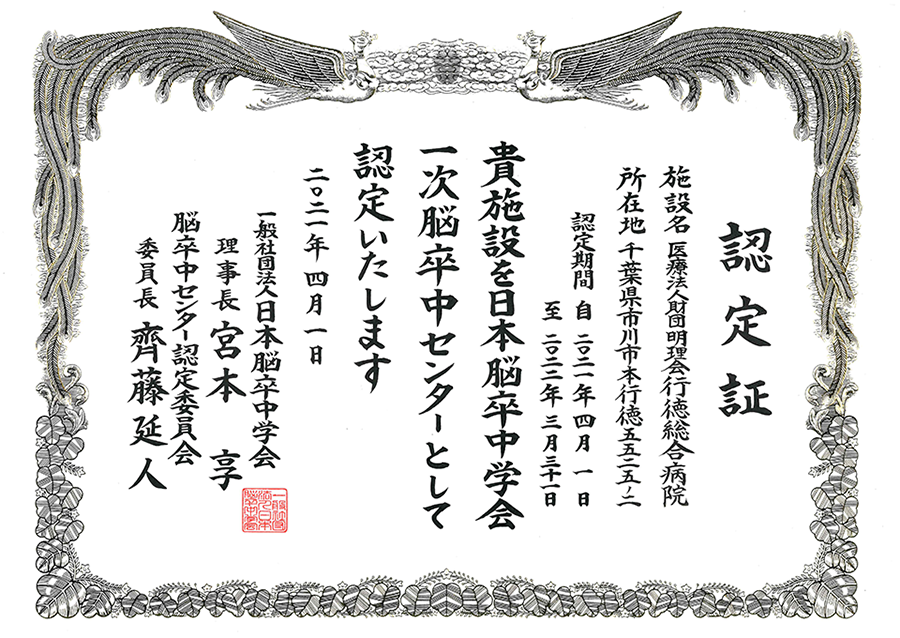 認定証
施設名 医療法人財団明理会行徳総合病院
所在地 千葉県市川市本行徳五五二五ノ二
認定期間 自 二〇二一年 四月 一日
至 二〇二二年 三月三十一日
貴施設を日本脳卒中学会
一次脳卒中センターとして
認定いたします
二〇二一年 四月一日
一般社団法人日本脳卒中学会
理事長 宮本 享
脳卒中センター認定委員会
委員長 齊藤延人